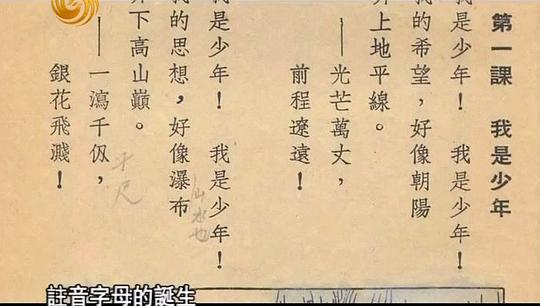 第一課 我是少年
我是少年！ 我是少年！
我的希望，好像朝陽
上地平線。
——光芒萬丈，
前程遼遠！
我是少年！ 我是少年！
我的思想，好像瀑布
下高山巔。
——一瀉千仭，
銀花飛濺！
註音字母的誕生